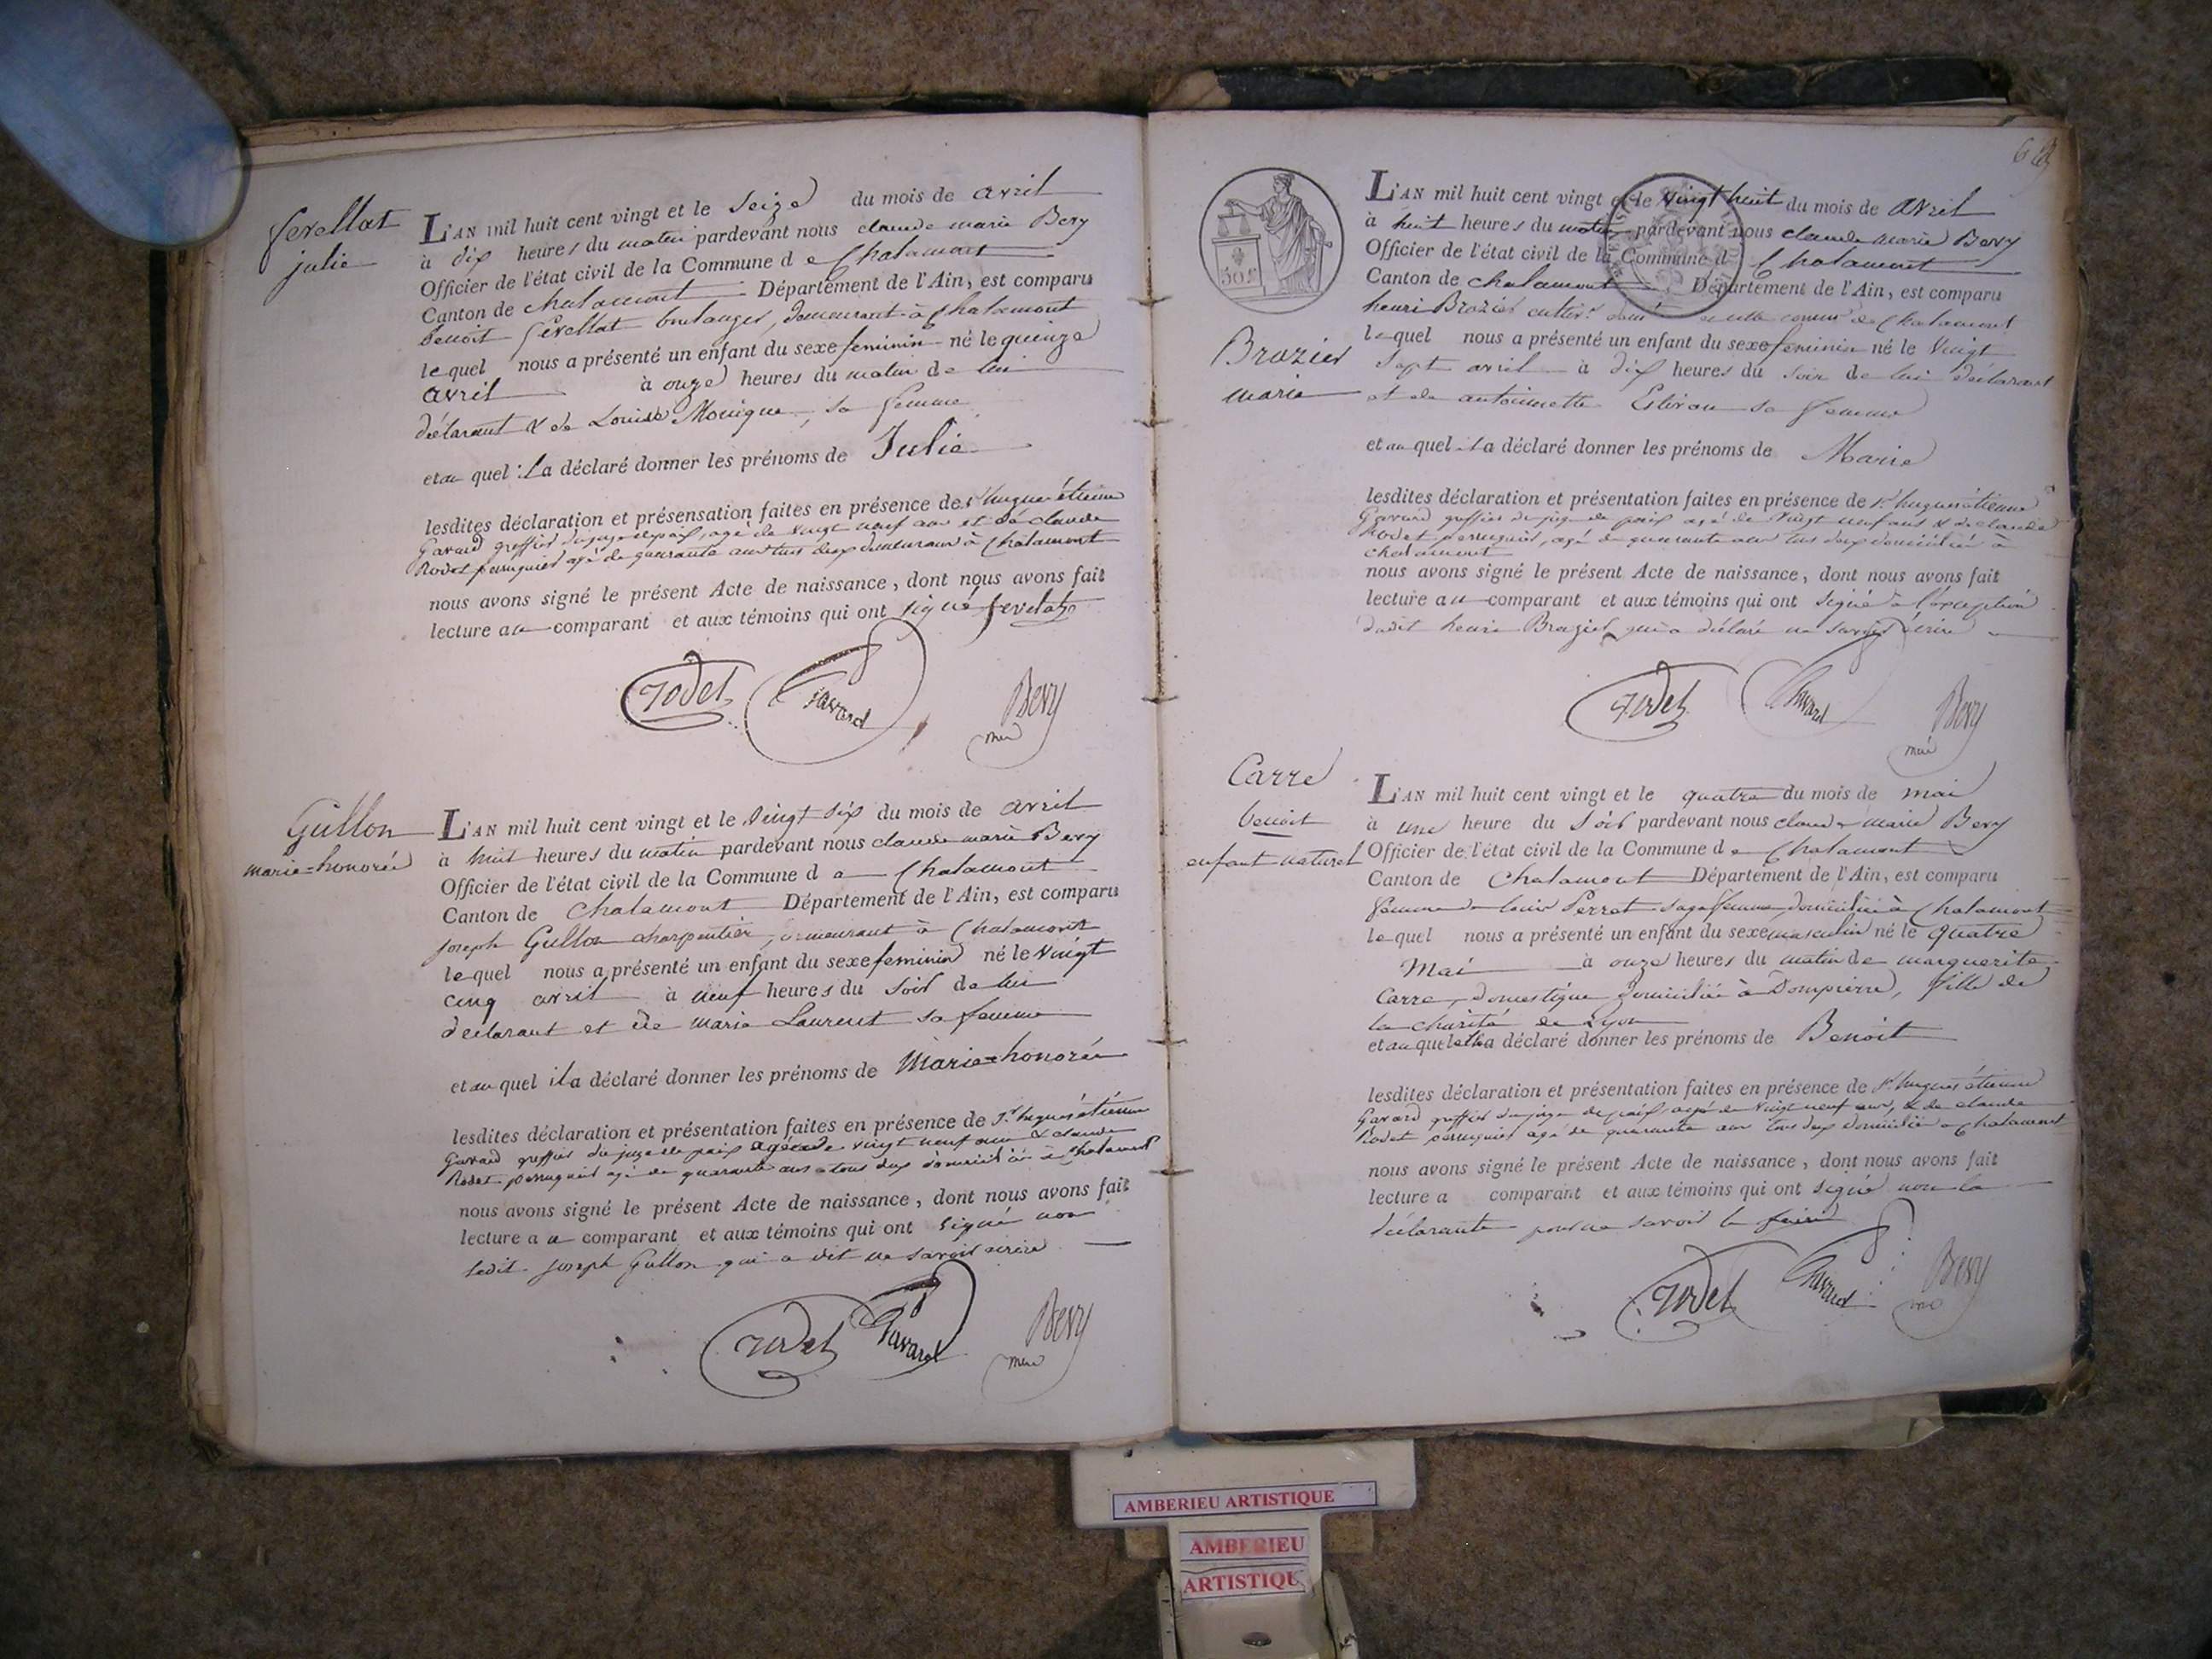 Gerellat
julie
L'AN mil huit cent vingt et le Seize du mois de avril
à dix heures du matin pardevant nous claude marie Bevy
Officier de l'état civil de la Commune de Chalamont
Canton de chalamont Département de l'Ain, est comparu
benoit Gerellat boulanger, demeurant à Chalamont
lequel nous a présenté un enfant du sexe feminin né le quinze
avril à onze heures du matin de lui
déclarant & de Louise Monique, sa femme
et au quel il a déclaré donner les prénoms de Julie
lesdites déclaration et présensation faites en présence de sr hugues étienne
Gavard greffier du juge de paix, agé de vingt neuf ans et de claude
Rodet perruquier agé de quarante ans tous deux demeurans à Chalamont
nous avons signé le présent Acte de naissance, dont nous avons fait
lecture au comparant et aux témoins qui ont signé
rodet Gavard Bevy
Gullon
marie=honorée
L'AN mil huit cent vingt et le vingt six du mois de avril
à huit heures du matin pardevant nous claude marie Bevy
Officier de l'état civil de la Commune de Chalamont
Canton de Chalamont Département de l'Ain, est comparu
joseph Gullon charpentier, demeurant à Chalamont
lequel nous a présenté un enfant du sexe feminin né le vingt
cinq avril à neuf heures du soir de lui
déclarant et de marie Laurent sa femme
et au quel il a déclaré donner les prénoms de Marie=honorée
lesdites déclaration et présentation faites en présence de sr hugues étienne
Gavard greffier du juge de paix agé de vingt neuf ans & claude
Rodet perruquier agé de quarante ans tous deux domiciliés à Chalamont
nous avons signé le présent Acte de naissance, dont nous avons fait
lecture au comparant et aux témoins qui ont signé non
ledit joseph Gullon qui a dit ne savoir écrire
rodet Gavard Bevy
30c
Brazier
marie
L'AN mil huit cent vingt et le vingt huit du mois de Avril
à huit heures du matin pardevant nous claude marie Bevy
Officier de l'état civil de la Commune de Chalamont
Canton de chalamont Département de l'Ain, est comparu
henri Brazier cultivr de Chalamont
lequel nous a présenté un enfant du sexe feminin né le vingt
sept avril à dix heures du soir de lui déclarant
et de antoinette sa femme
et au quel il a déclaré donner les prénoms de Marie
lesdites déclaration et présentation faites en présence de sr hugues étienne
Gavard greffier du juge de paix agé de vingt neuf ans & de claude
Rodet perruquier, agé de quarante ans tous deux domiciliés à
chalamont
nous avons signé le présent Acte de naissance, dont nous avons fait
lecture au comparant et aux témoins qui ont signé à l'exception
dudit henri Brazier qui a déclaré ne savoir écrire
rodet Gavard Bevy
Carre
benoit
enfant naturel
L'AN mil huit cent vingt et le quatre du mois de mai
à une heure du soir pardevant nous claude marie Bevy
Officier de l'état civil de la Commune de Chalamont
Canton de Chalamont Département de l'Ain, est comparu
femme de louis Perret sage femme domiciliée à Chalamont
lequel nous a présenté un enfant du sexe masculin né le quatre
Mai à onze heures du matin de marguerite
Carre, domestique domiciliée à Dompierre, fille de
la charité de Lyon
et au quel elle a déclaré donner les prénoms de Benoit
lesdites déclaration et présentation faites en présence de sr hugues étienne
Gavard greffier du juge de paix, agé de vingt neuf ans, & de claude
Rodet perruquier agé de quarante ans tous deux domiciliés à Chalamont
nous avons signé le présent Acte de naissance, dont nous avons fait
lecture a comparant et aux témoins qui ont signé non la
déclarante pour ne savoir le faire
rodet Gavard Bevy
AMBERIEU ARTISTIQUE
AMBERIEU
ARTISTIQU